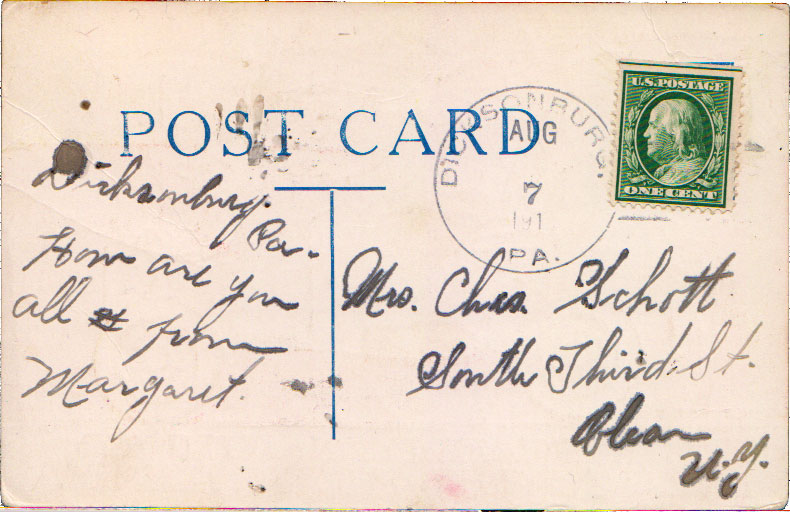 POST CARD
U.S. POSTAGE
ONE CENT
DICKSONBURG.
AUG
7
191
PA.
Dicksonburg.
Pa.
How are you
all from
Margaret.
Mrs. Chas. Schott
South Third St.
Olean
N.Y.